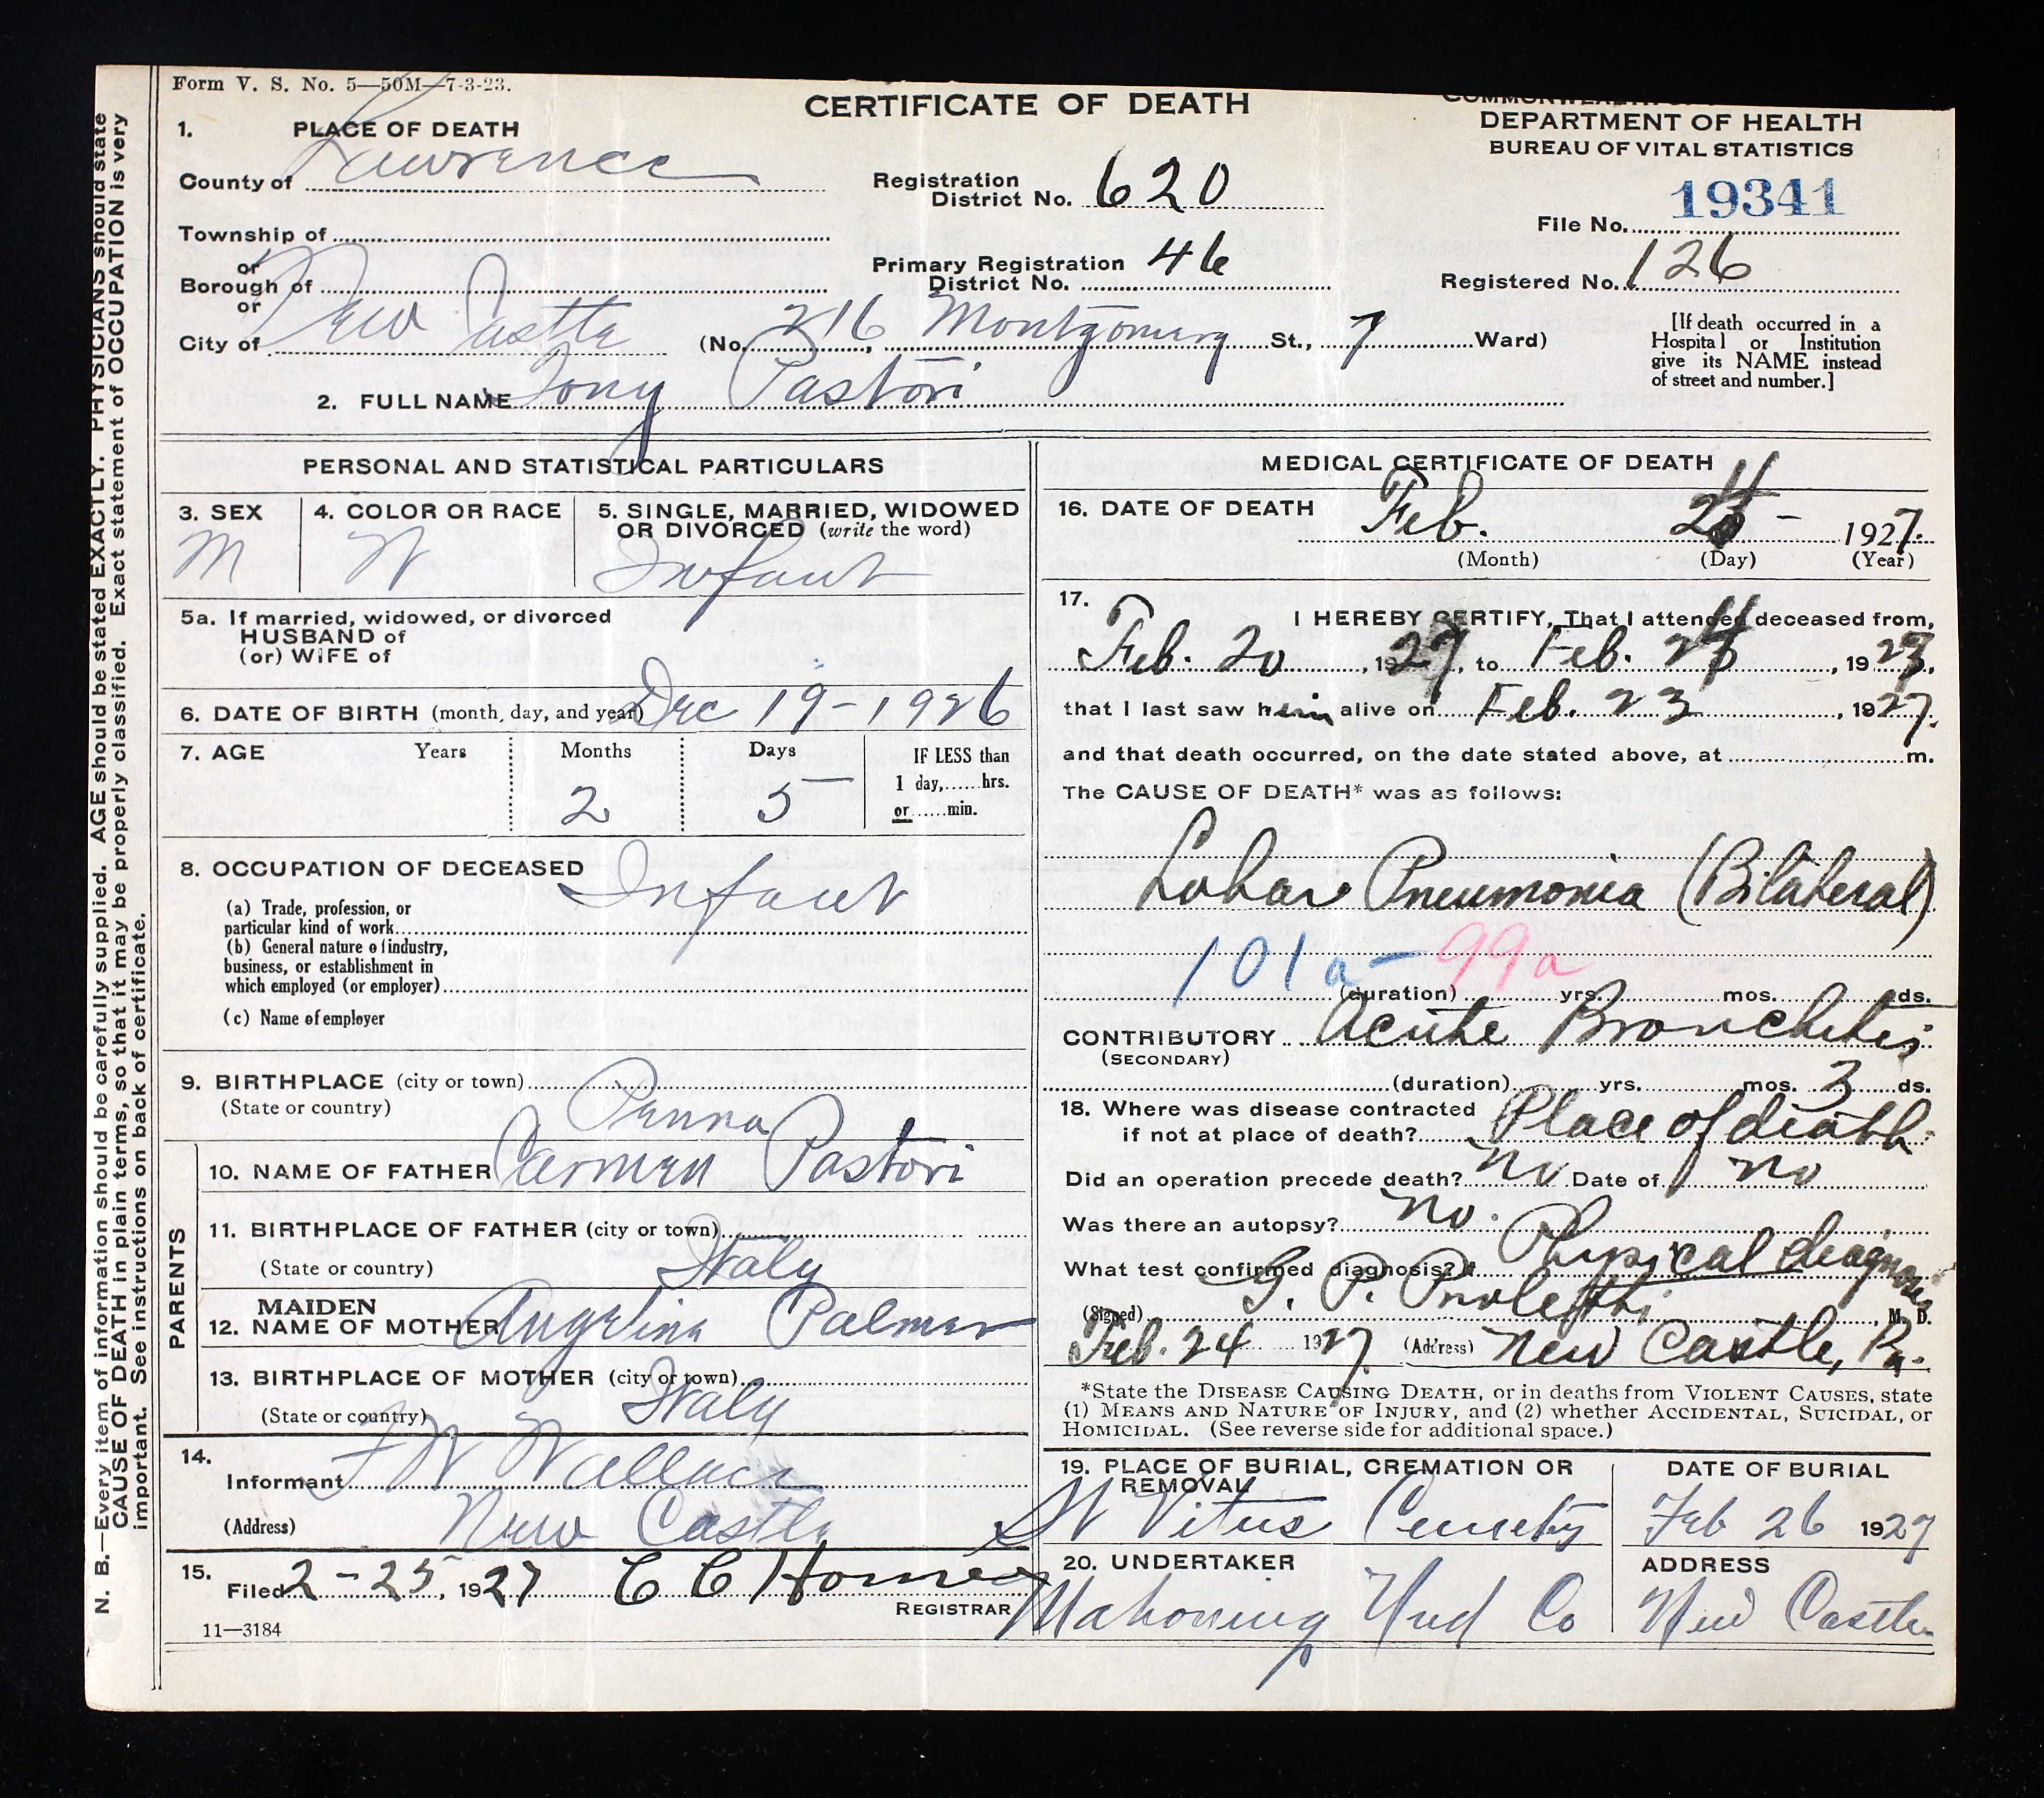 Form V. S. No. 5—50M—7-3-23.
CERTIFICATE OF DEATH
COMMONWEALTH OF
DEPARTMENT OF HEALTH
BUREAU OF VITAL STATISTICS
1. PLACE OF DEATH
County of Lawrence
Registration District No. 620
File No. 19341
Township of
or
Borough of
or
Primary Registration District No. 46
Registered No. 126
City of New Castle (No. 216 Montgomery St., 7 Ward)
[If death occurred in a Hospital or Institution give its NAME instead of street and number.]
2. FULL NAME Tony Pastori
PERSONAL AND STATISTICAL PARTICULARS
3. SEX
M
4. COLOR OR RACE
W
5. SINGLE, MARRIED, WIDOWED OR DIVORCED (write the word)
Infant
5a. If married, widowed, or divorced
HUSBAND of
(or) WIFE of
6. DATE OF BIRTH (month, day, and year) Dec 19-1926
7. AGE Years Months Days IF LESS than
1 day,......hrs.
or......min.
2 5
8. OCCUPATION OF DECEASED Infant
(a) Trade, profession, or
particular kind of work
(b) General nature of industry,
business, or establishment in
which employed (or employer)
(c) Name of employer
9. BIRTHPLACE (city or town)
(State or country) Penna
PARENTS
10. NAME OF FATHER Carmen Pastori
11. BIRTHPLACE OF FATHER (city or town)
(State or country) Italy
12. MAIDEN NAME OF MOTHER Angelina Palmer
13. BIRTHPLACE OF MOTHER (city or town)
(State or country) Italy
14.
Informant F W Wallace
(Address) New Castle
15.
Filed 2-25, 1927 C C Horner
REGISTRAR
11—3184
MEDICAL CERTIFICATE OF DEATH
16. DATE OF DEATH Feb. 24 - 1927.
(Month) (Day) (Year)
17. I HEREBY CERTIFY, That I attended deceased from,
Feb. 20, 1927, to Feb. 24, 1927,
that I last saw him alive on Feb. 23, 1927.
and that death occurred, on the date stated above, at m.
The CAUSE OF DEATH* was as follows:
Lobar Pneumonia (Bilateral)
101a - 99a
(duration) yrs. mos. ds.
CONTRIBUTORY Acute Bronchitis
(SECONDARY)
(duration) yrs. mos. 3 ds.
18. Where was disease contracted
if not at place of death? Place of death.
Did an operation precede death? no Date of no
Was there an autopsy? no.
What test confirmed diagnosis? Physical diagnosis
(Signed) G. P. M. D.
Feb. 24 1927. (Address) New Castle, Pa.
*State the DISEASE CAUSING DEATH, or in deaths from VIOLENT CAUSES, state
(1) MEANS AND NATURE OF INJURY, and (2) whether ACCIDENTAL, SUICIDAL, or
HOMICIDAL. (See reverse side for additional space.)
19. PLACE OF BURIAL, CREMATION OR REMOVAL
St Vitus Cemetery
DATE OF BURIAL
Feb 26 1927
20. UNDERTAKER
Mahoning Und Co
ADDRESS
New Castle
N. B.—Every item of information should be carefully supplied. AGE should be stated EXACTLY. PHYSICIANS should state
CAUSE OF DEATH in plain terms, so that it may be properly classified. Exact statement of OCCUPATION is very
important. See instructions on back of certificate.